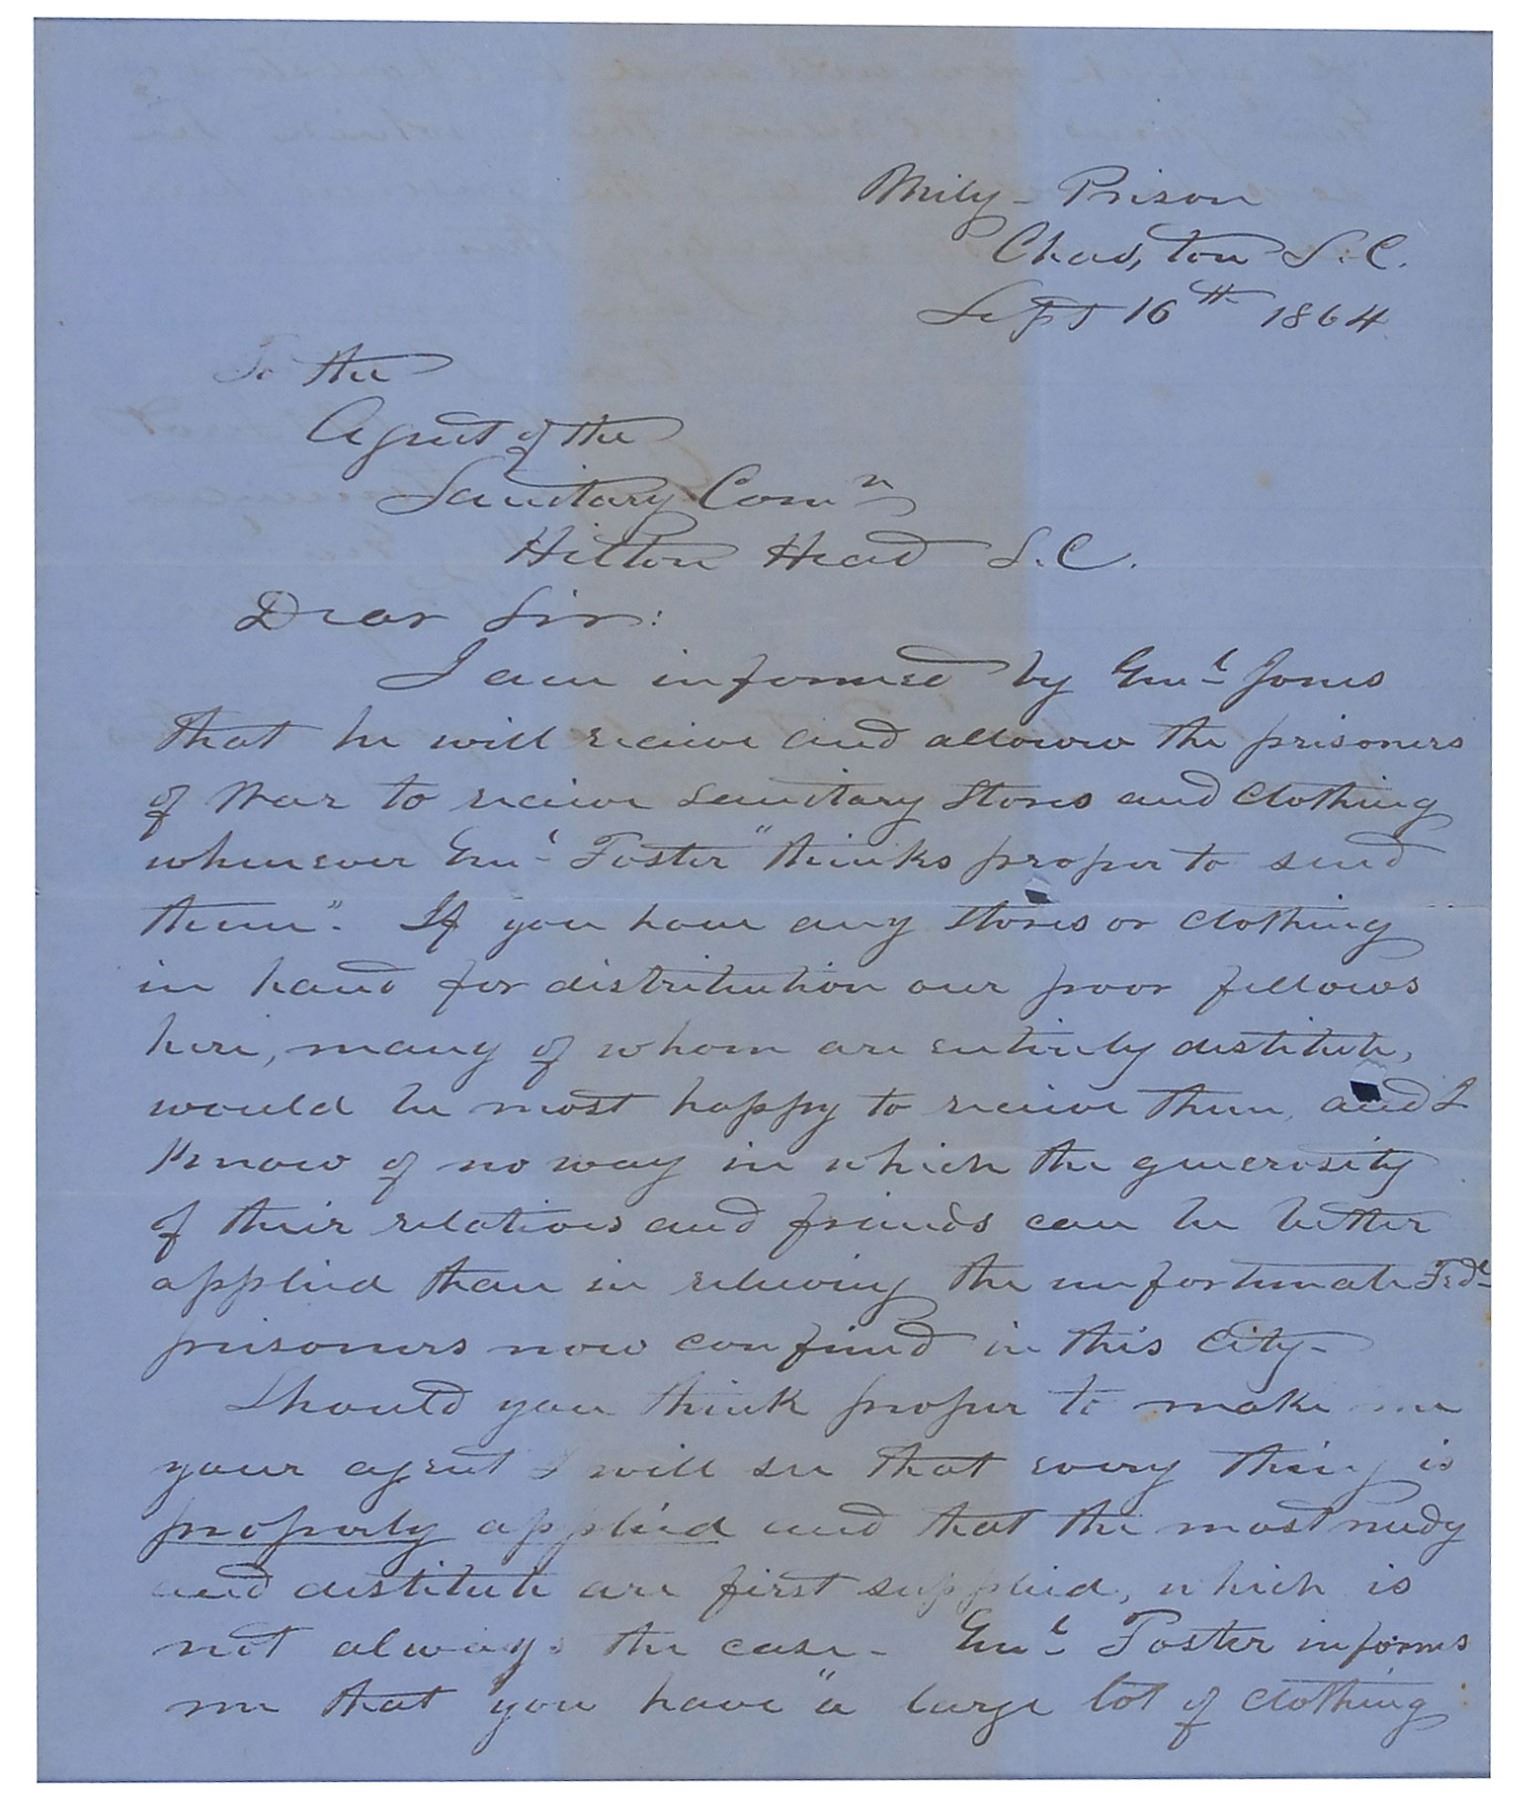 Mily - Prison
Chas,ton S.C.
Sept 16th 1864
To the
Agent of the
Sanitary Comn
Hilton Head S.C.
Dear Sir:
I am informed by Genl Jones
that he will receive and alloww the prisoners
of War to receive Sanitary Stores and Clothing
whenever Genl Foster "thinks proper to send
them". If you have any Stores or clothing
in hand for distribution our poor fellows
here, many of whom are entirely destitute,
would be most happy to receive them, and I
Know of no way in which the generosity
of their relatives and friends can be better
applied than in relieving the unfortunate Fedl
prisoners now confined in this City-
Should you think proper to make me
your agent I will see that every thing is
properly applied and that the most needy
and destitute are first supplied, which is
not always the case - Genl Foster informs
me that you have "a large lot of clothing